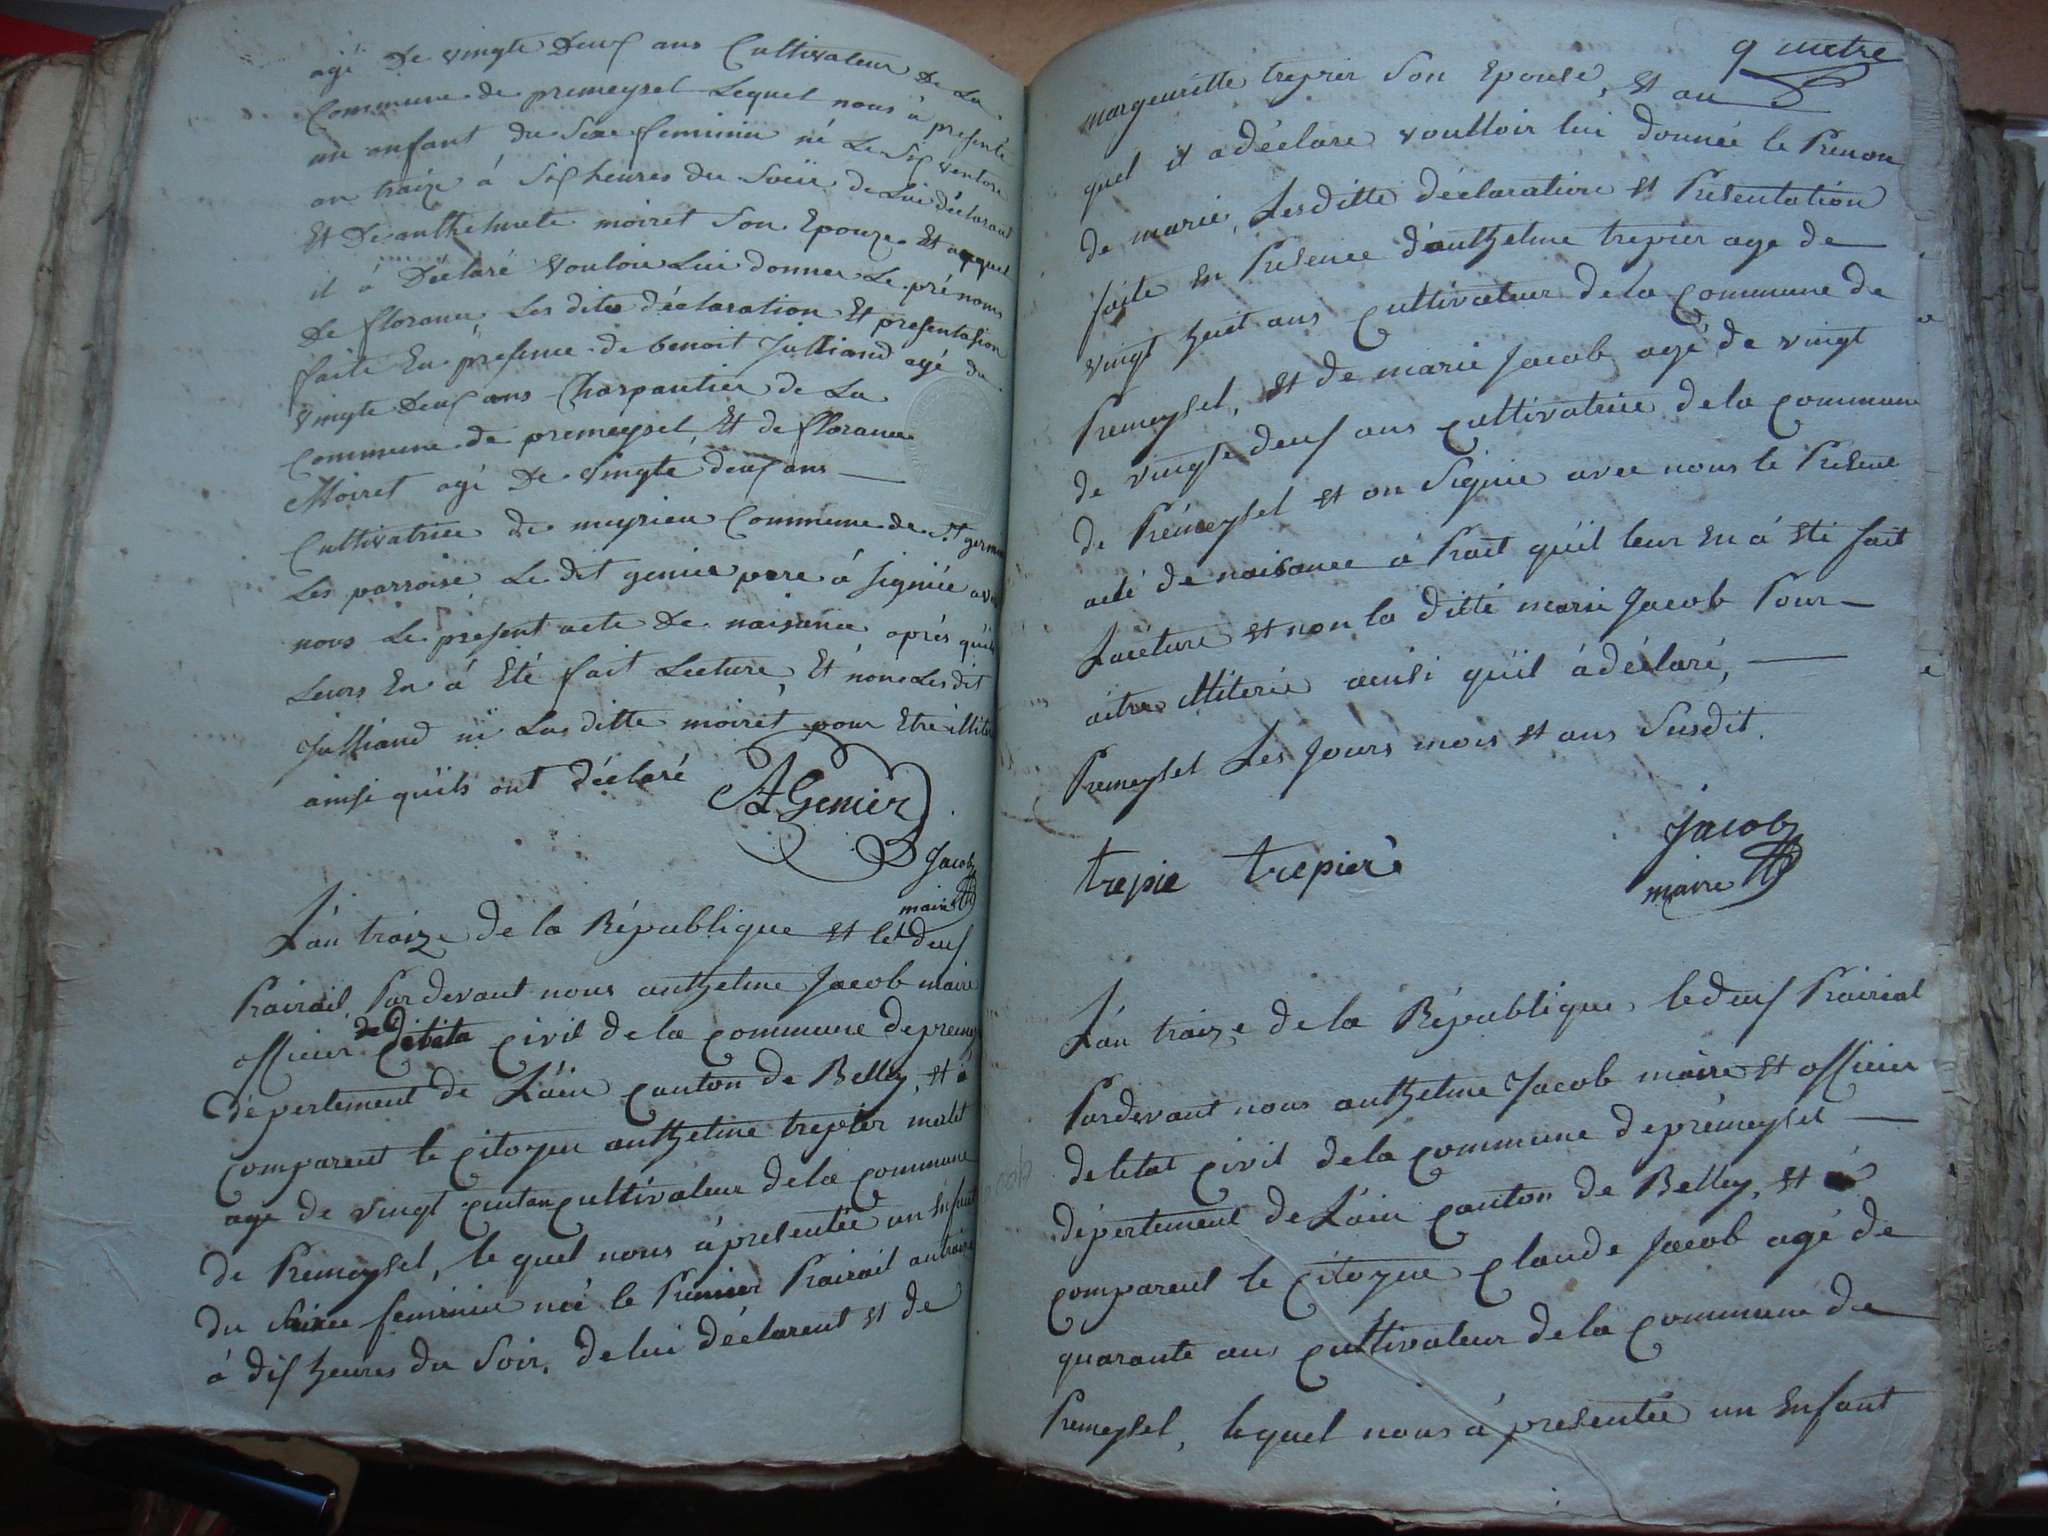 agé De vingte Deux ans Cultivateur De La
Commune de premeysel Lequel nous à presenté
un enfant du Sexe feminin né Le Six ventose
an traize à Six heures du Soir de Lui déclarant
Et De anthelmete moiret Son Epouze Et auquel
il à Déclaré vouloir Lui donner Le prénom
De florance Les dites déclaration Et presentasion
faite En presence de benoit Julliand agé de
vingte Deux ans Charpantier de La
Commune de premeysel, Et de florance
Moiret agé De vingte deux ans
Cultivatrice de meyrieu Commune de St germin
Les parroise, Le dit genier pere à signiée avec
nous Le present acte De naisance aprés qu'il
Leurs En á Eté fait Lecture, Et non Lesdit
Julliand ni Lasditte moiret pour Etre illiteré
ainsi quils ont déclaré
A Genier
Jacob
maire
L'an traize de la République et le deux
Prairail, Pardevant nous anthelme Jacob maire
officier de letat civil de la commune de premeysel
dépertement de L'ain canton de Belley, et à
comparent le citoyen anthelme trepier molet
age de vingt cint an cultivateur dela commune
de Premeysel, le quel nous à présentée un Enfant
du Seixe feminin née le Premier Prairail an traize
à dix heures du Soir, de lui déclarent et de
9 metre
margeuritte trepier Son Epouse, et au
quel il adéclare voulloir lui donnée le Prenon
de marie, Lesditte déclaration et Présentation
faite en Présence d'anthelme trepier age de
vingt huit ans cultivateur dela commune de
Premeysel, et de marie Jacob agé de vingt
de vingte deux ans cultivatrice dela commune
de Prémeysel et on Signie avec nous le Present
acte de naisance à Prait quil leur en á eté fait
Laceture et non la ditte marie Jacob Pour
aitre illiterie ainsi quil àdéclaré,
Premeysel Les Jours mois et ans Susdit.
trepie trepier
Jacob
maire
L'an traize dela République, le deux Prairial
Pardevant nous anthelme Jacob maire et officier
de letat civil dela commune de prémeysel
dépertement de L'ain canton de Belley, et à
comparent le citoyen claude Jacob agé de
quarante ans cultivateur dela commune de
Premeysel, lequel nous à présentée un Enfant